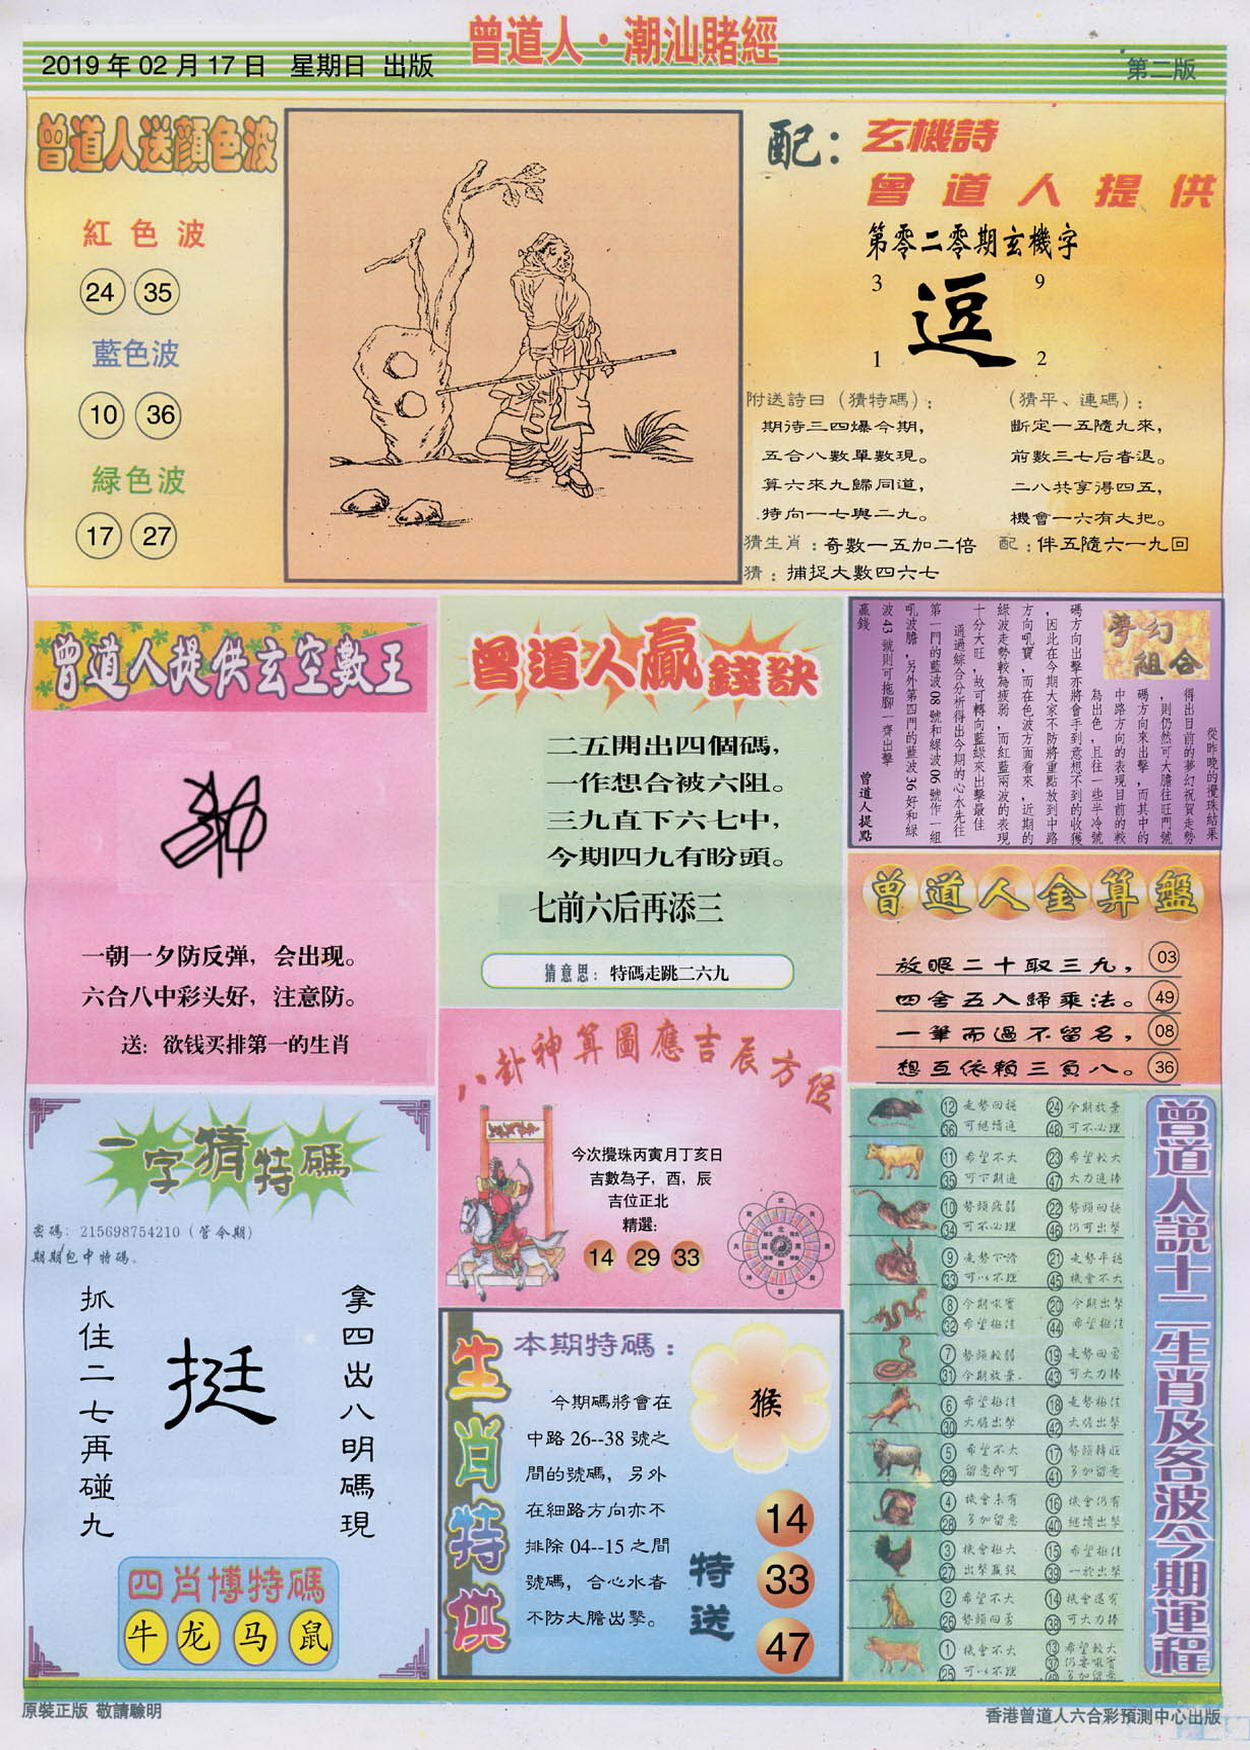 曾道人·潮汕賭經
2019 年 02 月 17 日 星期日 出版
第二版
曾道人送顏色波
紅色波
24 35
藍色波
10 36
緑色波
17 27
配：玄機詩
曾道人提供
第零二零期玄機字
3 9
逗
1 2
附送詩曰（猜特碼）：
期待三四爆今期，
五合八數單數現。
算六來九歸同道，
特向一七與二九。
（猜平、連碼）：
斷定一五隨九來，
前數三七后者退。
二八共享得四五，
機會一六有大把。
猜生肖：奇數一五加二倍 配：伴五隨六一九回
猜：捕捉大數四六七
曾道人提供玄空數王
一朝一夕防反弹，会出现。
六合八中彩头好，注意防。
送：欲钱买排第一的生肖
曾道人贏錢訣
二五開出四個碼，
一作想合被六阻。
三九直下六七中，
今期四九有盼頭。
七前六后再添三
猜意思：特碼走跳二六九
夢幻組合
從昨晚的攪珠結果
得出目前的夢幻祝賀走勢
，則仍然可大膽往旺門號
碼方向來出擊，而其中的
中路方向的表現目前的較
為出色，且往一些半冷號
碼方向出擊亦將會手到意想不到的收獲
，因此在今期大家不防將重點放到中路
方向吼寶，而在色波方面看來，近期的
綠波走勢較為疲弱，而紅藍兩波的表現
十分大旺，故可轉向藍綠來出擊最佳
通過綜合分析得出今期的心水先往
第一門的藍波08號和綠波06號作一組
吼波膽，另外第四門的藍波36好和綠
波43號則可拖腳一齊出擊
贏錢 曾道人提點
曾道人金算盤
放眼二十取三九， 03
四舍五入歸乘法。 49
一筆而過不留名， 08
想互依賴三負八。 36
一字猜特碼
密碼：215698754210（管令期）
期期包中特碼。
拿四出八明碼現
挺
抓住二七再碰九
四肖博特碼
牛 龙 马 鼠
八卦神算圖應吉辰方位
今次攪珠丙寅月丁亥日
吉數為子，酉，辰
吉位正北
精選：
14 29 33
生肖特供
本期特碼：
猴
今期碼將會在
中路 26--38 號之
間的號碼，另外
在細路方向亦不
排除 04--15 之間
號碼，合心水者
不防大膽出擊。
特送
14
33
47
曾道人説十二生肖及各波今期運程
12 走勢回穩 24 今期放棄
36 可繼續追 48 可不必理
11 希望不大 23 希望較大
35 可下期追 47 大力追捧
10 勢頭疲弱 22 勢頭回穩
34 可不必理 46 仍可出擊
9 走勢下滑 21 走勢平穩
33 可以不理 45 機會不大
8 今期吼寶 20 今期出擊
32 希望極佳 44 希望極佳
7 勢頭較弱 19 走勢回雪
31 今期放棄. 43 可大力捧
6 希望極佳 18 走勢極佳
30 大膽出擊 42 大膽出擊
5 希望不大 17 勢頭轉旺
29 留意即可 41 多加留意
4 機會未有 16 機會仍有
28 多加留意 40 繼續出擊
3 機會極大 15 希望極佳
27 出擊贏錢 39 一於出擊
2 希望不大 14 機會還有
26 勢頭回勇 38 可大力捧
1 機會不大 13 希望較大
25 可以不理 37 仍要吼寶
49 多加留意
原裝正版 敬請驗明
香港曾道人六合彩預測中心出版